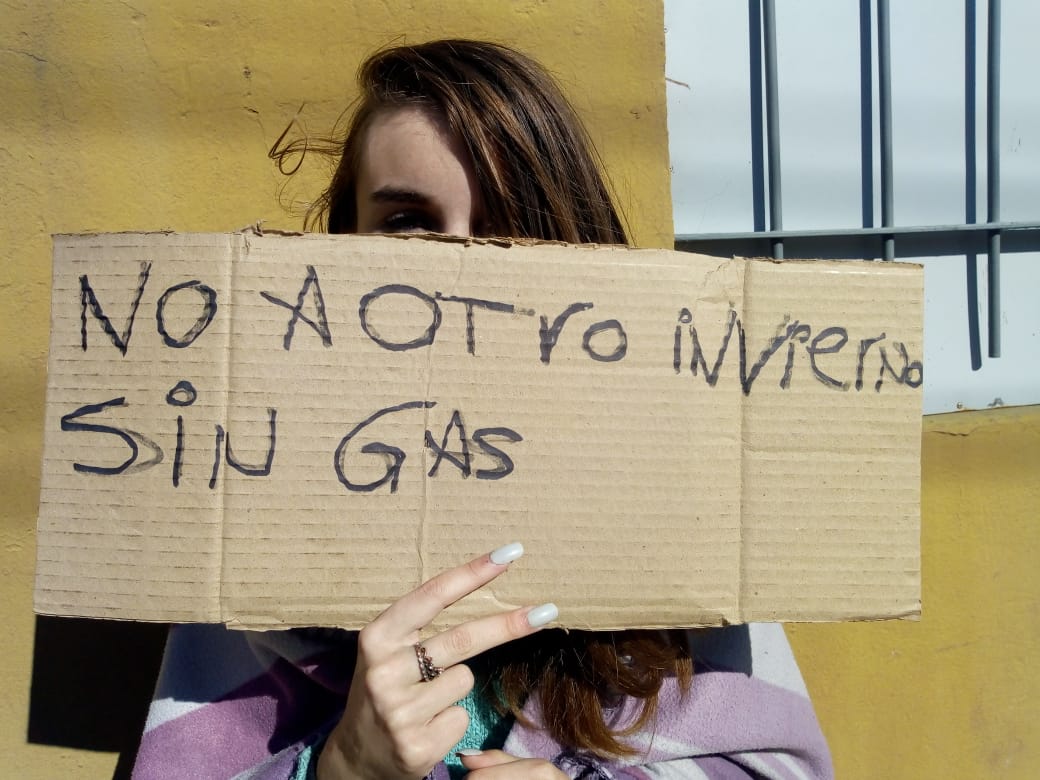 NO A OTrO iNViErNo
SiN GAS